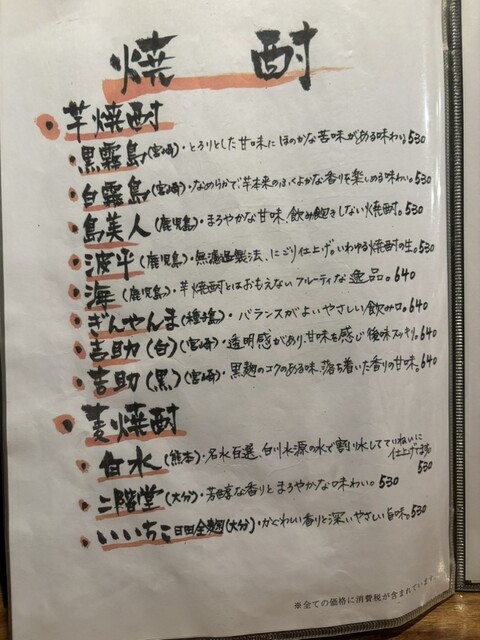 焼酎
芋焼酎
黒霧島(宮崎)・とろりとした甘味にほのかな苦味がある味わい。530
白霧島(宮崎)・なめらかで芋本来のふくよかな香りを楽しめる味わい。530
島美人(鹿児島)・まろやかな甘味、飲み飽きしない焼酎。530
波平(鹿児島)・無濾過製法、にごり仕上げ。いわゆる焼酎の生。530
海(鹿児島)・芋焼酎とはおもえないフルーティな逸品。640
ぎんやんま(種子島)・バランスがよいやさしい飲み口。640
吉助(白)(宮崎)・透明感があり、甘味も感じ後味スッキリ。640
吉助(黒)(宮崎)・黒麹のコクのある味、落ち着いた香りの甘味。640
麦焼酎
白水(熊本)・名水百選、白川水源の水で割り水してていねいに
530
二階堂(大分)・芳醇な香りとまろやかな味わい。530
いいちこ日田全麹(大分)・かぐわしい香りと深いやさしい旨味。530
※全ての価格に消費税が含まれています。